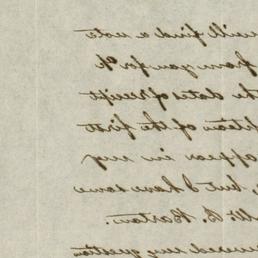 will find a note
from you for
the dates of receipt
of the first
appear in my
, but I have some
Mr. B. Barton.
my question